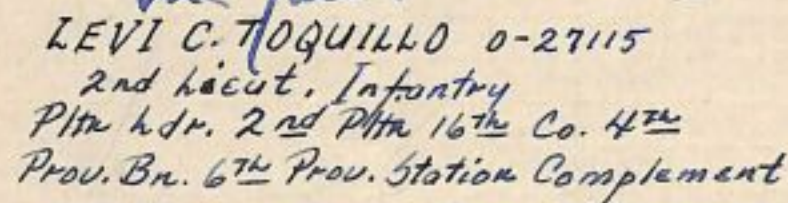 LEVI C. TOQUILLO O-27115
2nd Lieut. Infantry
Pltn Ldr. 2nd Pltn 16th Co. 4th
Prov. Bn. 6th Prov. Station Complement